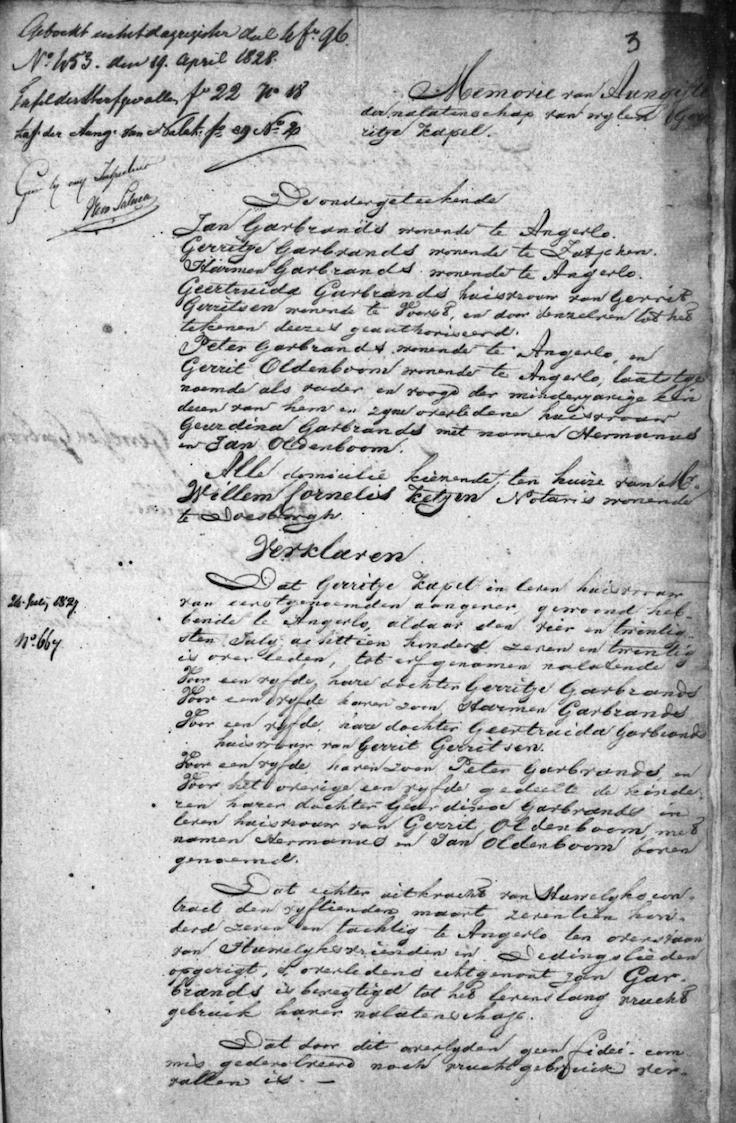 Geboekt in het dagregister deel 4 fo 96.
No 453. den 19. April 1828.
Tafel der Sterfgevallen fo 22 No 18
Taf. der Aang. van Nalat. fo 39 No 20
3
Memorie van Aangifte
der nalatenschap van wylen
ritje Kapel.
De ondergeteekende
Jan Garbrands wonende te Angerlo.
Gerritje Garbrands wonende te Zutphen.
Harmen Garbrands wonende te Angerlo.
Geertruida Garbrands huisvrouw van Gerrit
Gerritsen wonende te Voorst, en door denzelven tot het
tekenen dezes geauthoriseerd.
Peter Garbrands, wonende te Angerlo, en
Gerrit Oldenboom wonende te Angerlo, laatstge
noemde als vader en voogd der minderjarige kin
deren van hem en zyne overledene huisvrouw
Geurdina Garbrands met namen Hermanus
en Jan Oldenboom.
Alle domicilie kiezende ten huize van Mr.
Willem Cornelis Ketjen Notaris wonende
te Doesborgh
Verklaren
Dat Gerritje Kapel in leven huisvrouw
van eerstgenoemden aangever, gewoond heb-
bende te Angerlo, aldaar den vier en twintig-
24 July 1827
sten July achttien honderd zeven en twintig
No. 667
is overleden, tot erfgenamen nalatende
Voor een vyfde, hare dochter Gerritje Garbrands
Voor een vyfde haren zoon, Harmen Garbrands
Voor een vyfde, hare dochter Geertruida Garbrands
huisvrouw van Gerrit Gerritsen.
Voor een vyfde, haren zoon Peter Garbrands, en
Voor het overige een vyfde gedeelte de kinde-
ren harer dochter Geurdina Garbrands in
leven huisvrouw van Gerrit Oldenboom, met
namen Hermanus en Jan Oldenboom boven
genoemd.
Dat echter uit kracht van Huwelyks con-
tract den vyftienden maart zeventien hon-
derd zeven en tachtig te Angerlo ten overstaan
van Huwelyksvrienden en Dedingslieden
opgerigt, s' overledens echtgenoot Jan Gar-
brands is beregtigd tot het levenslang vrucht
gebruik harer nalatenschap.
Dat door dit overlyden geen fidei-com
mis gedevolveerd noch vruchtgebruik ver-
vallen is. —